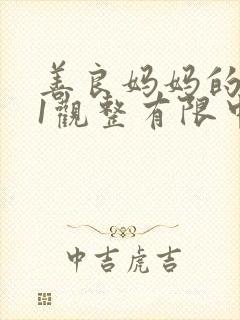 善良妈妈的
1觀整有限中
中吉虎吉